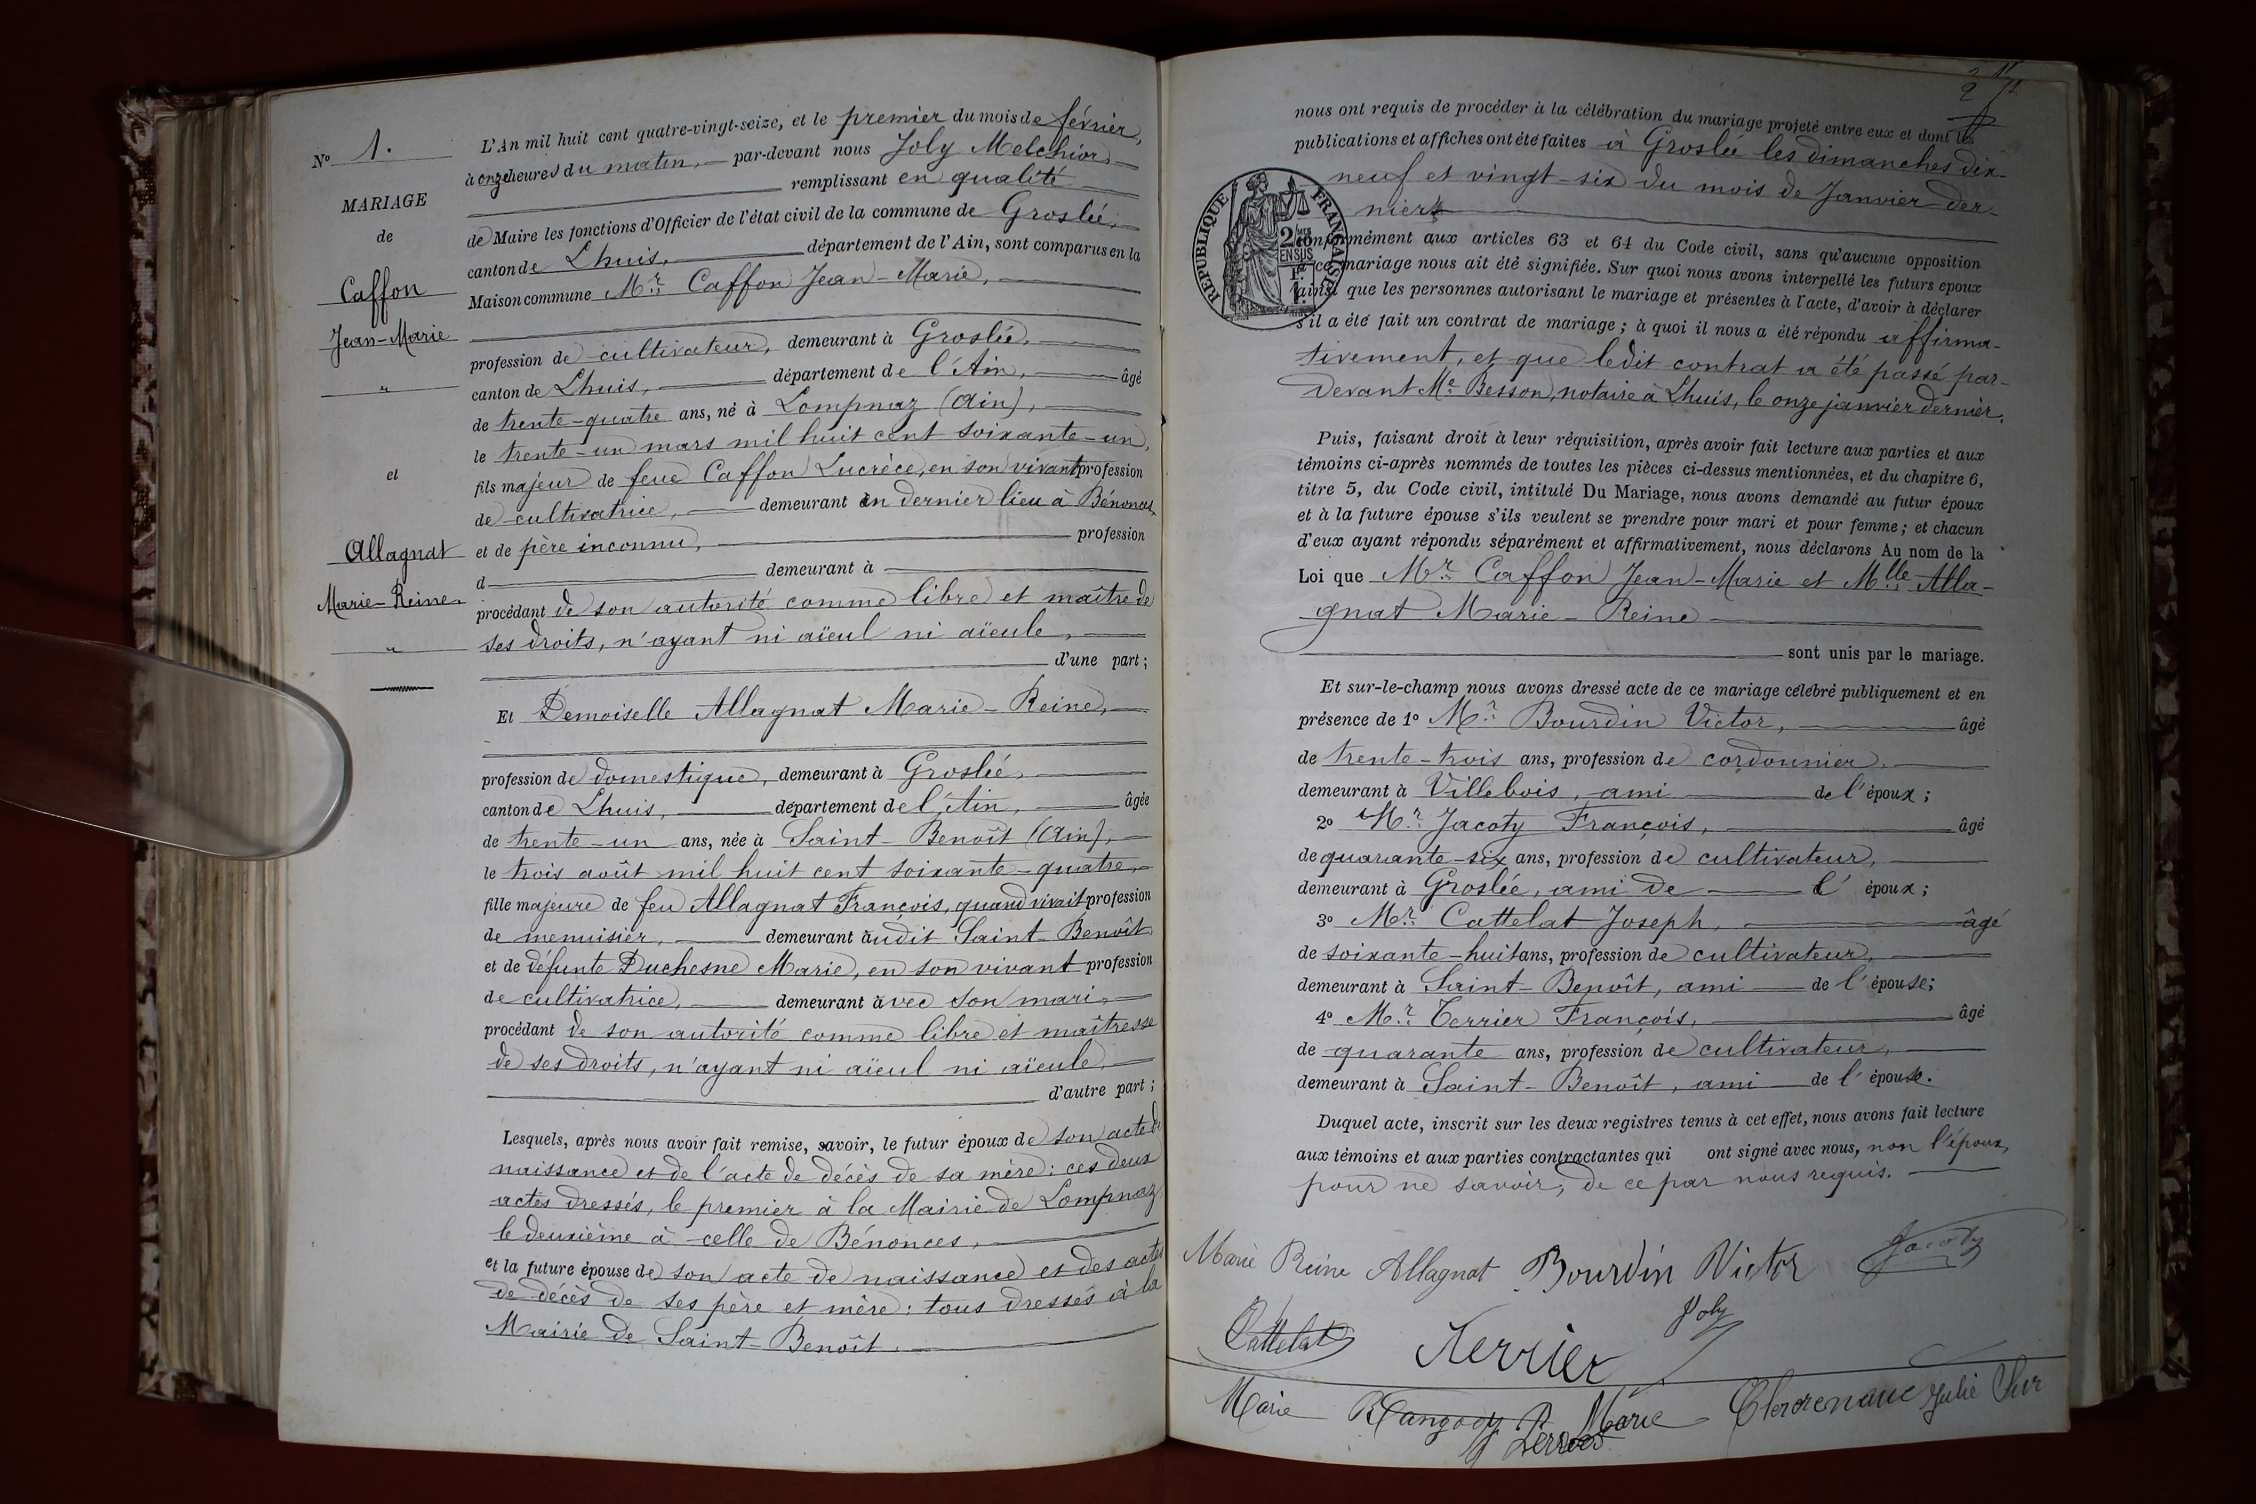 Nº 1.
MARIAGE
de
Caffon
Jean-Marie
"
et
Allagnat
Marie-Reine
"
L'An mil huit cent quatre-vingt-seize, et le premier du mois de février,
à onze heures du matin, par-devant nous Joly Melchior
remplissant en qualité
de Maire les fonctions d'Officier de l'état civil de la commune de Groslée,
canton de Lhuis, département de l'Ain, sont comparus en la
Maison commune Mr. Caffon Jean-Marie,
profession de cultivateur, demeurant à Groslée,
canton de Lhuis, département de l'Ain, âgé
de trente-quatre ans, né à Lompnaz (Ain),
le trente-un mars mil huit cent soixante-un,
fils majeur de feue Caffon Lucrèce, en son vivant profession
de cultivatrice, demeurant en dernier lieu à Bénonces,
et de père inconnu, profession
d demeurant à
procédant de son autorité comme libre et maître de
ses droits, n'ayant ni aïeul ni aïeule,
d'une part;
Et Demoiselle Allagnat Marie-Reine,
profession de domestique, demeurant à Groslée,
canton de Lhuis, département de l'Ain, âgée
de trente-un ans, née à Saint-Benoît (Ain),
le trois août mil huit cent soixante-quatre,
fille majeure de feu Allagnat François, quand vivait profession
de menuisier, demeurant audit Saint-Benoît
et de défunte Duchesne Marie, en son vivant profession
de cultivatrice, demeurant avec son mari,
procédant de son autorité comme libre et maîtresse
de ses droits, n'ayant ni aïeul ni aïeule,
d'autre part;
Lesquels, après nous avoir fait remise, savoir, le futur époux de son acte de
naissance et de l'acte de décès de sa mère: ces deux
actes dressés, le premier à la Mairie de Lompnaz,
le deuxième à celle de Bénonces,
et la future épouse de son acte de naissance et des actes
de décès de ses père et mère: tous dressés à la
Mairie de Saint-Benoît,
2
nous ont requis de procéder à la célébration du mariage projeté entre eux et dont les
publications et affiches ont été faites à Groslée les dimanches dix-
neuf et vingt-six du mois de Janvier der-
niers
conformément aux articles 63 et 64 du Code civil, sans qu'aucune opposition
ce mariage nous ait été signifiée. Sur quoi nous avons interpellé les futurs époux
ainsi que les personnes autorisant le mariage et présentes à l'acte, d'avoir à déclarer
s'il a été fait un contrat de mariage; à quoi il nous a été répondu affirma-
tivement, et que ledit contrat a été passé par-
devant Me Besson, notaire à Lhuis, le onze janvier dernier.
RÉPUBLIQUE FRANÇAISE
2
EN SUS
Puis, faisant droit à leur réquisition, après avoir fait lecture aux parties et aux
témoins ci-après nommés de toutes les pièces ci-dessus mentionnées, et du chapitre 6,
titre 5, du Code civil, intitulé Du Mariage, nous avons demandé au futur époux
et à la future épouse s'ils veulent se prendre pour mari et pour femme; et chacun
d'eux ayant répondu séparément et affirmativement, nous déclarons Au nom de la
Loi que Mr. Caffon Jean-Marie et Mlle Alla-
gnat Marie-Reine
sont unis par le mariage.
Et sur-le-champ nous avons dressé acte de ce mariage célébré publiquement et en
présence de 1º Mr. Bourdin Victor, âgé
de trente-trois ans, profession de cordonnier,
demeurant à Villebois, ami de l'époux;
2º Mr. Jacoty François, âgé
de quarante-six ans, profession de cultivateur,
demeurant à Groslée, ami de l' époux;
3º Mr. Cattelat Joseph, âgé
de soixante-huit ans, profession de cultivateur,
demeurant à Saint-Benoît, ami de l'épouse;
4º Mr. Terrier François, âgé
de quarante ans, profession de cultivateur,
demeurant à Saint-Benoît, ami de l'épouse.
Duquel acte, inscrit sur les deux registres tenus à cet effet, nous avons fait lecture
aux témoins et aux parties contractantes qui ont signé avec nous, non l'époux,
pour ne savoir, de ce par nous requis.
Marie Reine Allagnat Bourdin Victor Jacoty
Cattelat Terrier Joly
Marie Marie Julie